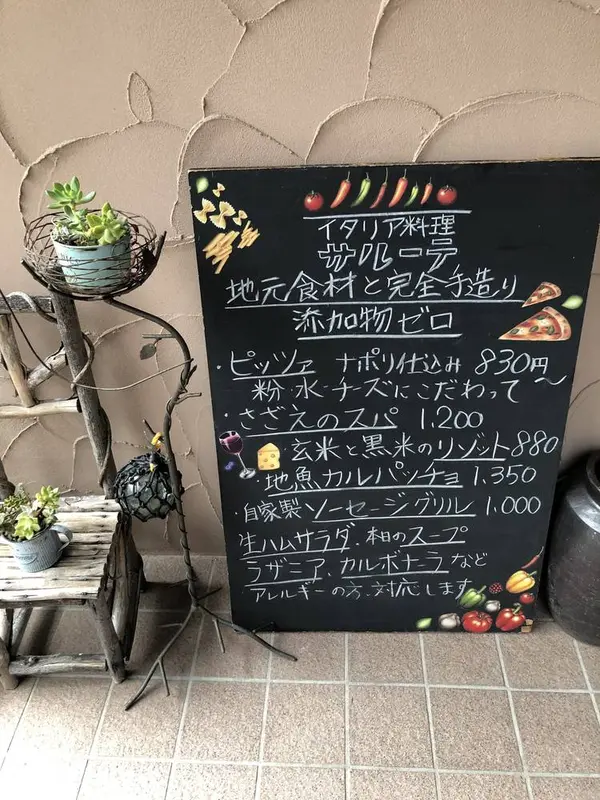 イタリア料理
サルーテ
地元食材と完全手造り
添加物ゼロ
・ピッツァ ナポリ仕込み 830円~
粉・水・チーズにこだわって
・さざえのスパ 1.200
玄米と黒米のリゾット 880
・地魚カルパッチョ 1.350
・自家製ソーセージグリル 1.000
生ハムサラダ、本日のスープ
ラザニア、カルボナーラなど
・アレルギーの方、対応します